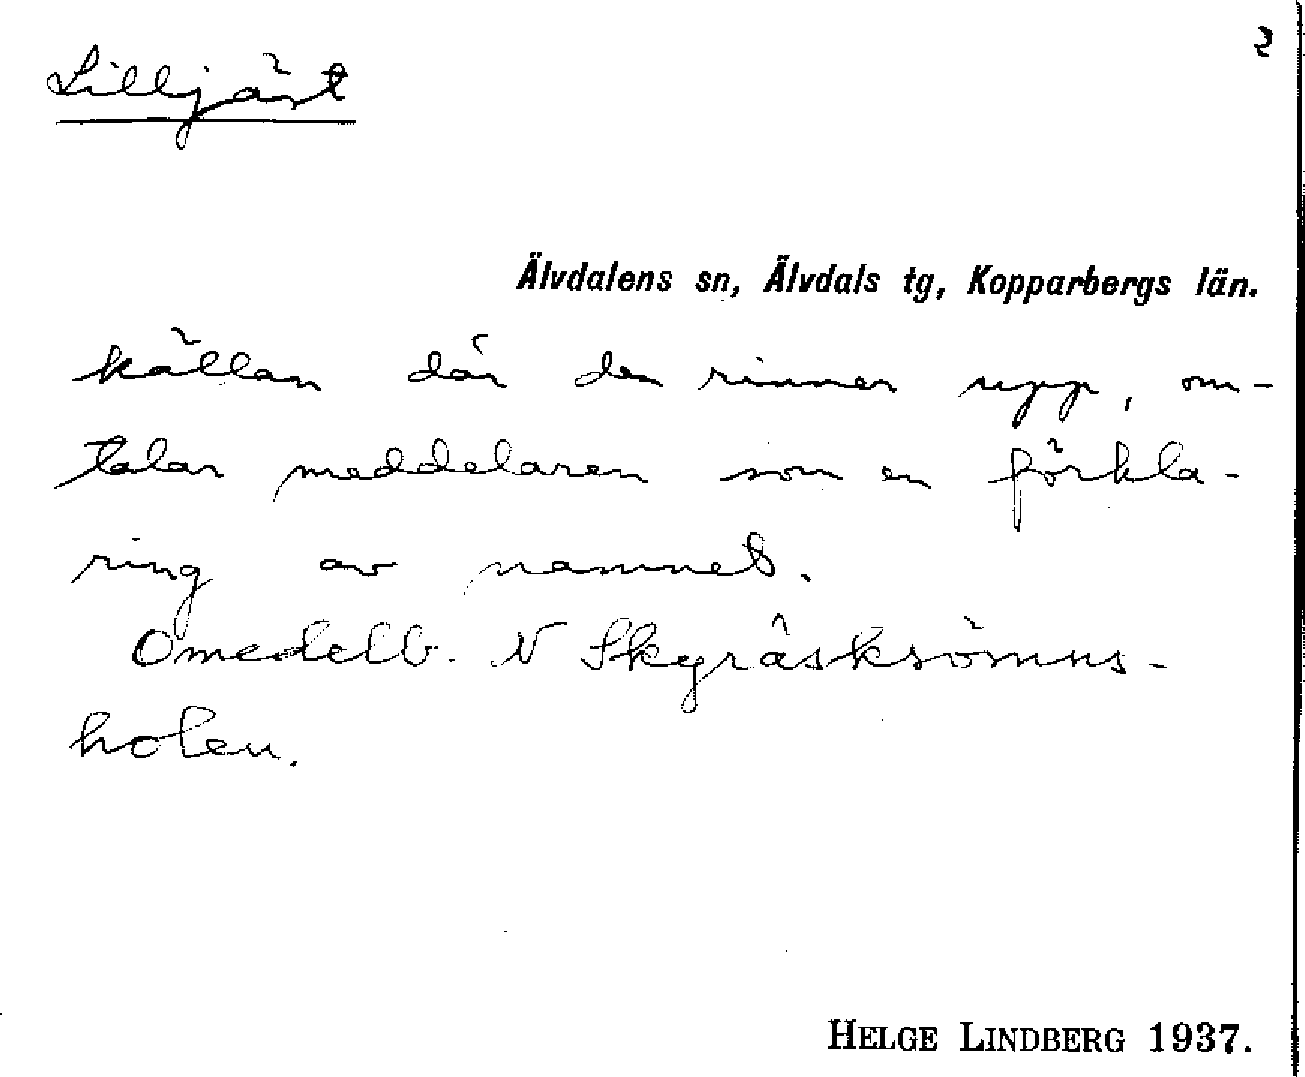 2
Lilljäst
Älvdalens sn, Älvdals tg, Kopparbergs län.
källan där den rinner upp, om-
talar meddelaren som en förkla-
ring av namnet.
Omedelb. N Skyräsksömns-
holen.
HELGE LINDBERG 1937.